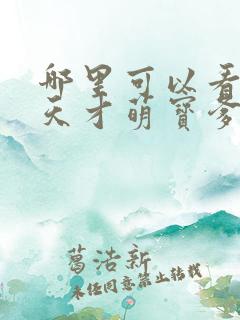 哪里可以看
天才萌寶爹
葛洁新
未经同意禁止转载